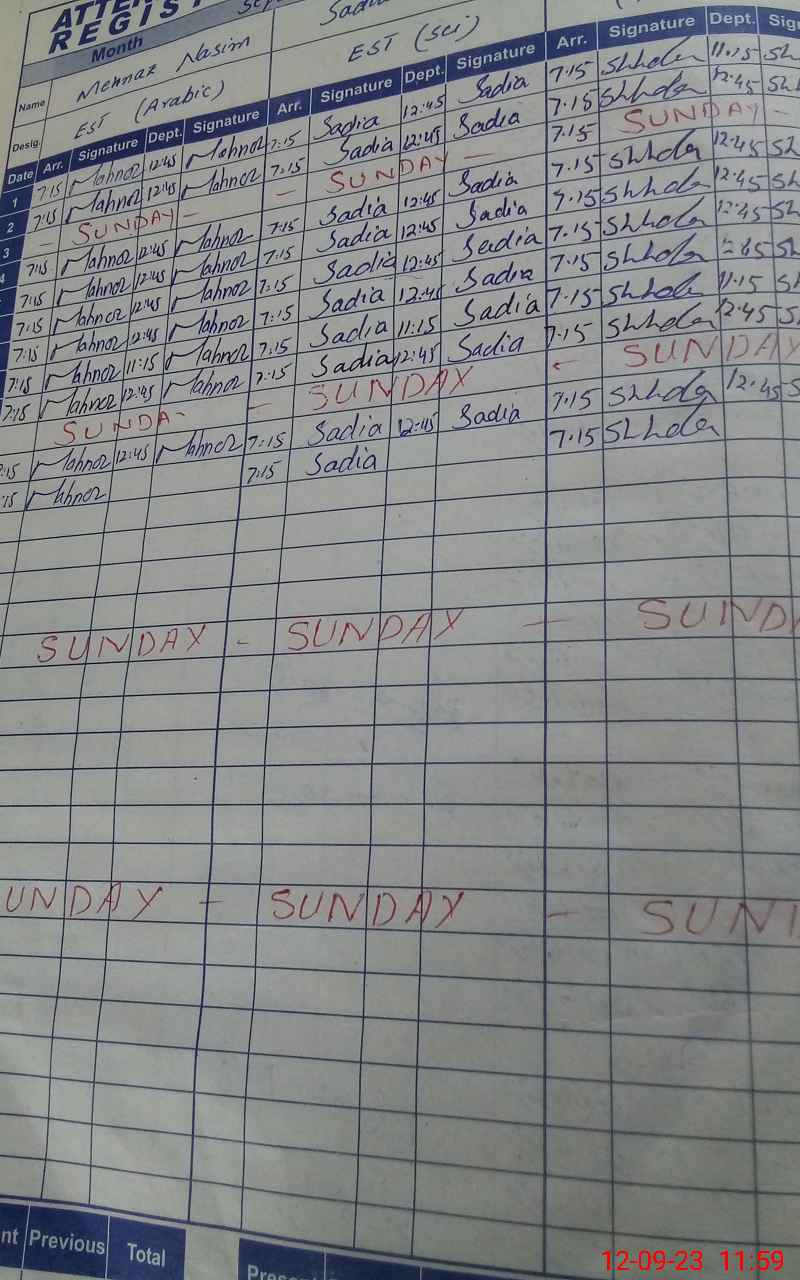 ATTEN
REGIST
Month Sep
Name Mehnaz Nasim Sadia
Desig. EST (Arabic) EST (Sci)
Date Arr. Signature Dept. Signature Arr. Signature Dept. Signature Arr. Signature Dept. Sig
1 7:15 Mahnoz 12:45 Mahnoz 7:15 Sadia 12:45 Sadia 7:15 Shhola 11:15 Sh
2 7:15 Mahnoz 12:45 Mahnoz 7:15 Sadia 12:45 Sadia 7:15 Shhola 12:45 Sh
3 - SUNDAY - - SUNDAY - 7:15 SUNDAY -
4 7:15 Mahnoz 12:45 Mahnoz 7:15 Sadia 12:45 Sadia 7:15 Shhola 12:45 Sh
7:15 Mahnoz 12:45 Mahnoz 7:15 Sadia 12:45 Sadia 7:15 Shhola 12:45 Sh
7:15 Mahnoz 12:45 Mahnoz 7:15 Sadia 12:45 Sadia 7:15 Shhola 12:45 Sh
7:15 Mahnoz 12:45 Mahnoz 7:15 Sadia 12:45 Sadia 7:15 Shhola 12:45 Sh
7:15 Mahnoz 11:15 Mahnoz 7:15 Sadia 11:15 Sadia 7:15 Shhola 11:15 Sh
7:15 Mahnoz 12:45 Mahnoz 7:15 Sadia 12:45 Sadia 7:15 Shhola 12:45 S
SUNDA - - SUNDAY - SUNDAY
7:15 Mahnoz 12:45 Mahnoz 7:15 Sadia 12:45 Sadia 7:15 Shhola 12:45 S
:15 Mahnoz 7:15 Sadia 7:15 Shhola
SUNDAY - SUNDAY - SUNDA
UNDAY - SUNDAY - SUN
nt Previous Total Prese
12-09-23 11:59